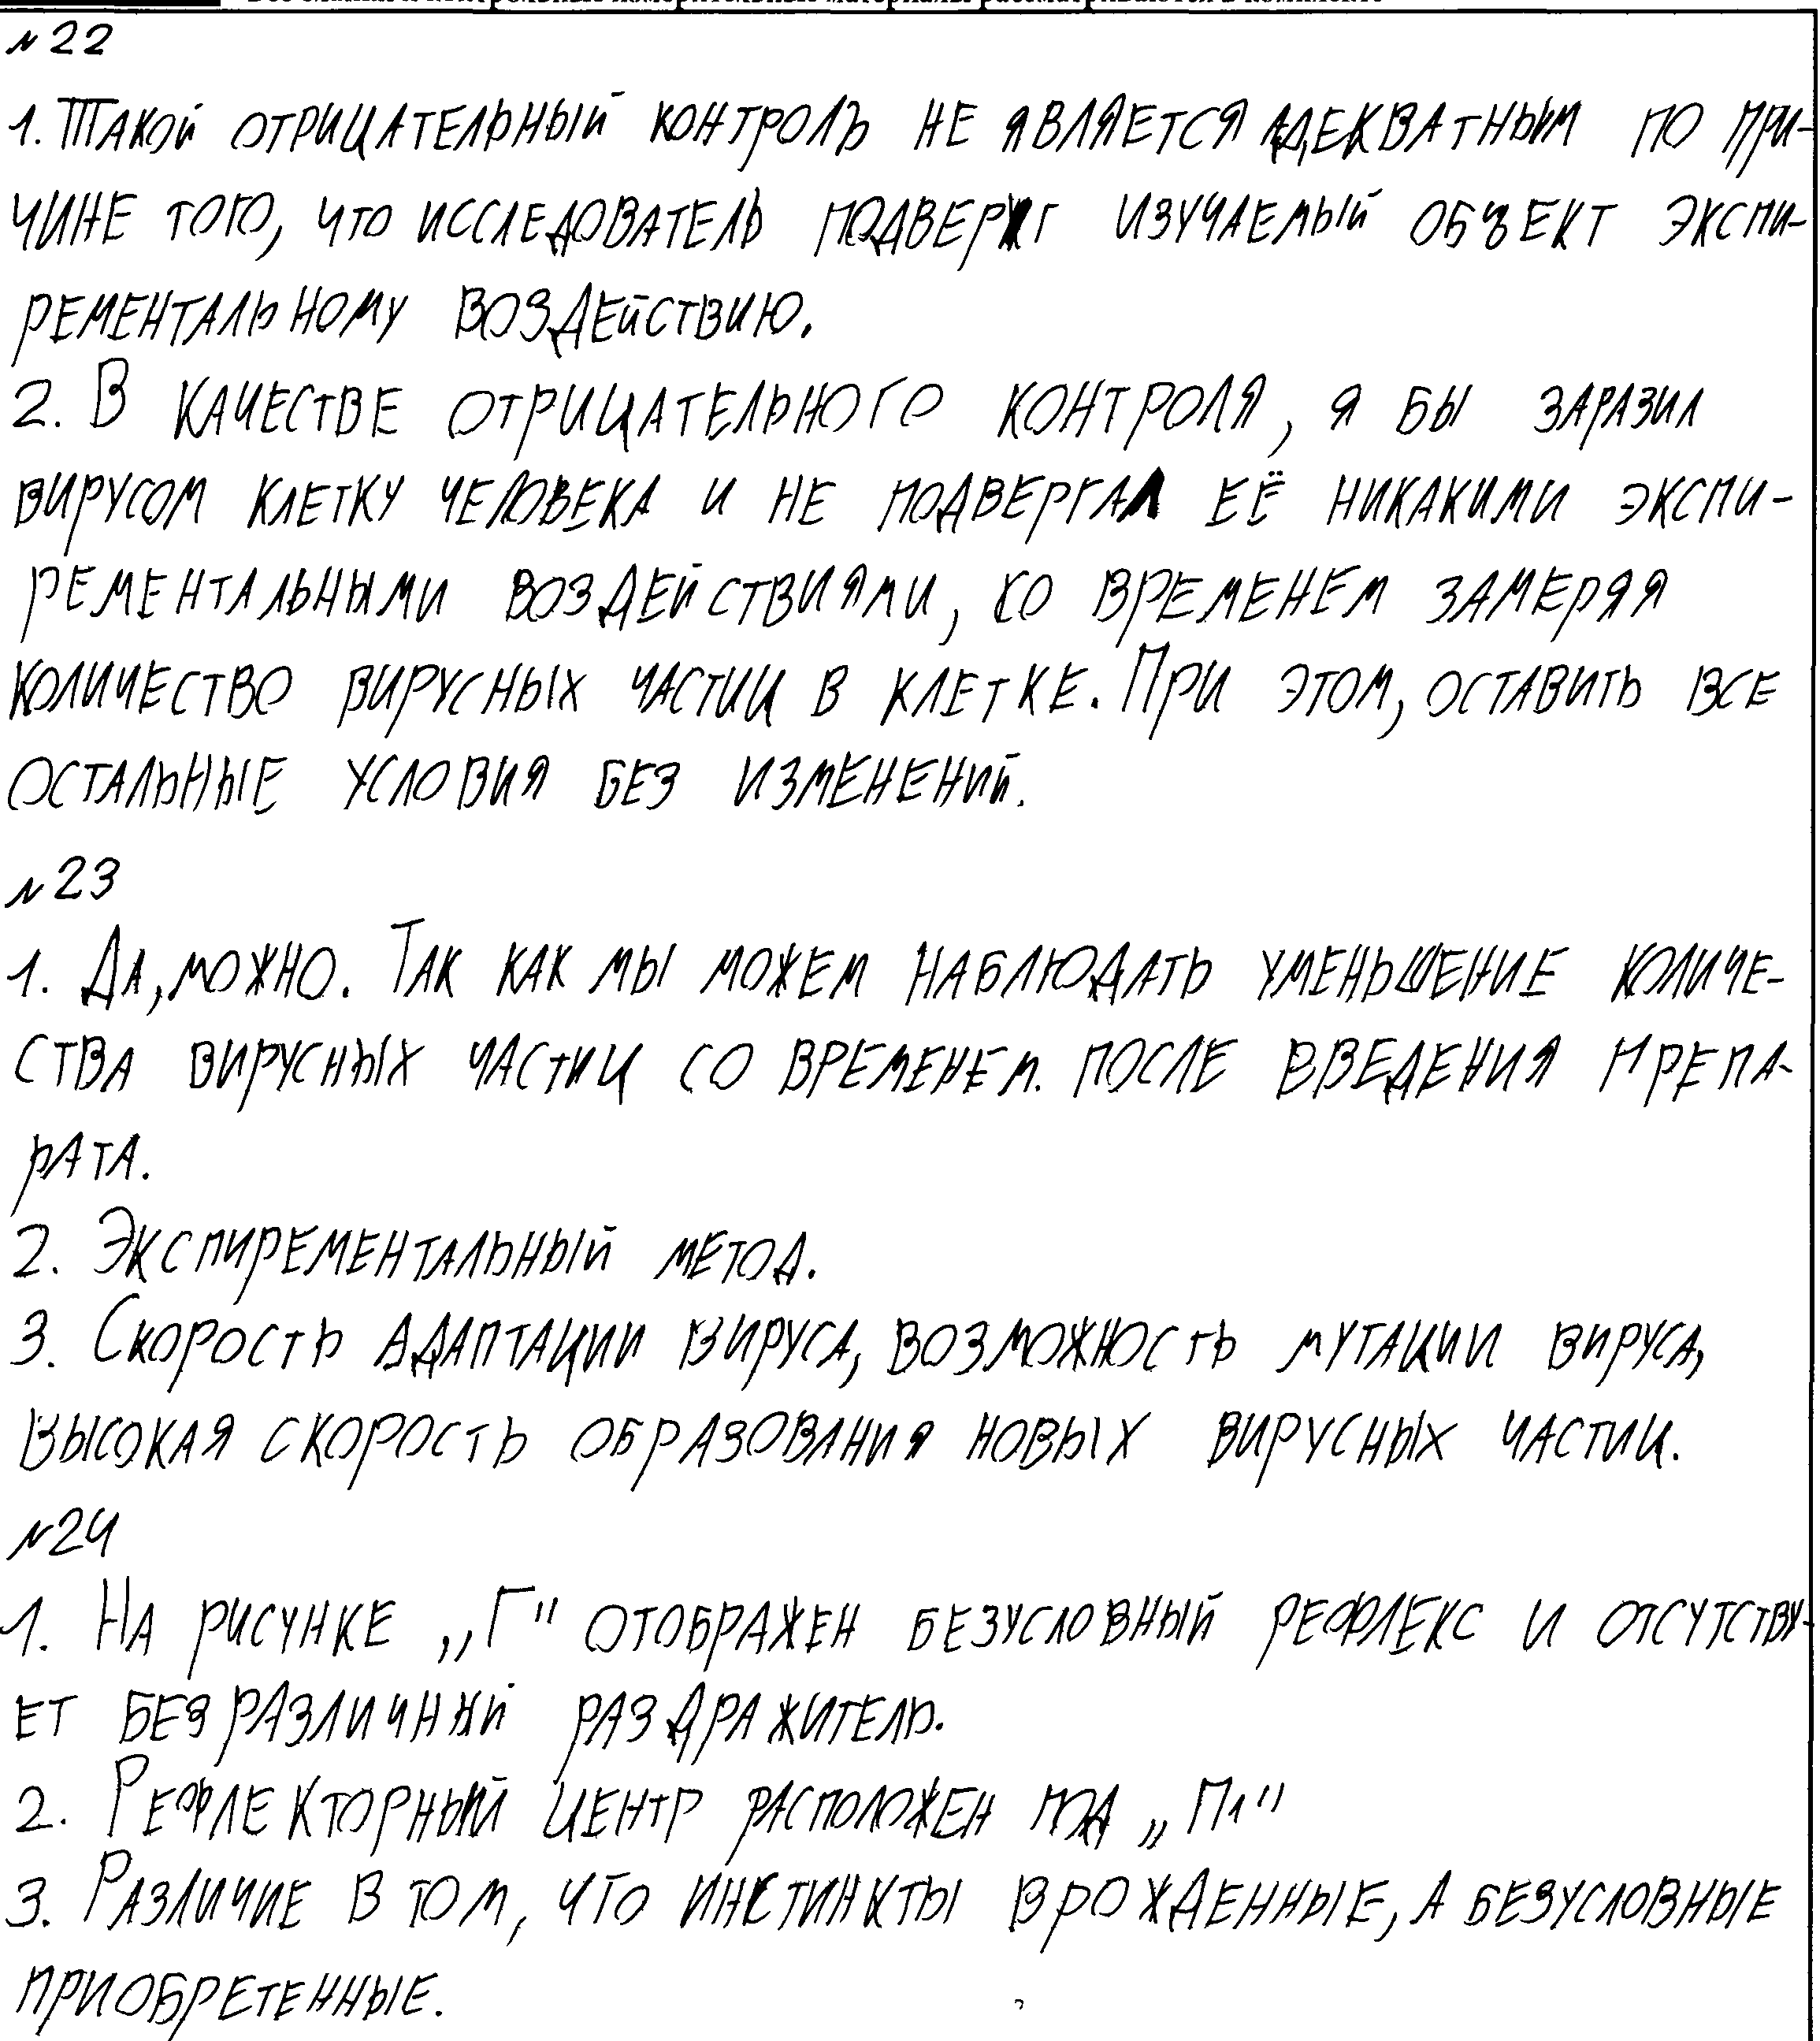 №22
1. Такой отрицательный контроль не является адекватным по при-
чине того, что исследователь подверг изучаемый объект экспи-
рементальному воздействию.
2. В качестве отрицательного контроля, я бы заразил
вирусом клетку человека и не подвергал её никакими экспи-
рементальными воздействиями, со временем замеряя
количество вирусных частиц в клетке. При этом, оставить все
остальные условия без изменений.
№23
1. Да, можно. Так как мы можем наблюдать уменьшение количе-
ства вирусных частиц со временем. после введения препа-
рата.
2. Экспирементальный метод.
3. Скорость адаптации вируса, возможность мутации вируса,
высокая скорость образования новых вирусных частиц.
№24
1. На рисунке „Г" отображен безусловный рефлекс и отсутству-
ет безразличный раздражитель.
2. Рефлекторный центр расположен под „П1"
3. Различие в том, что инстинкты врожденные, а безусловные
приобретенные.